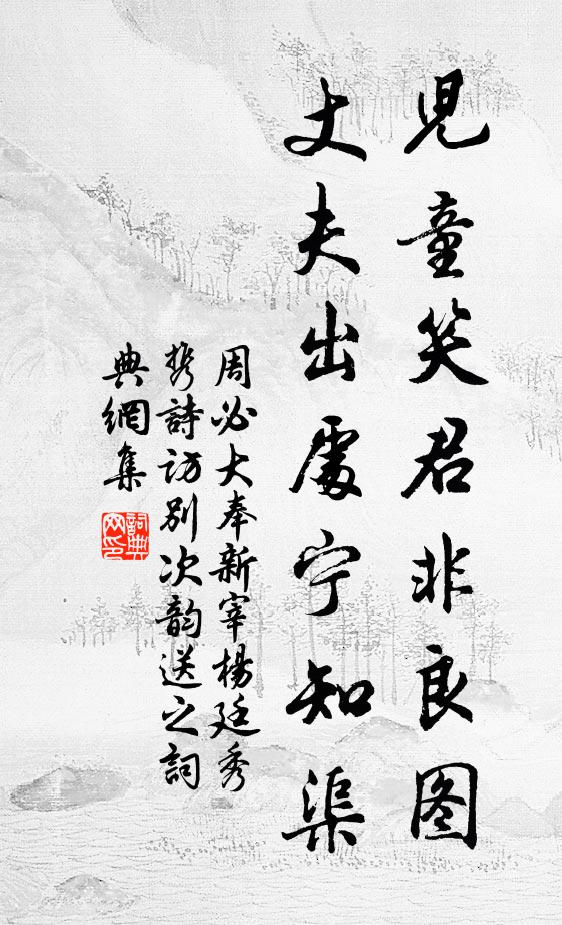 兒童笑君非良图
丈夫出處宁知渠
周必大奉新宰楊廷秀
携詩访别次韵送之詞
典網集
詞典
网印